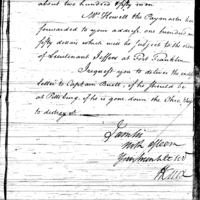 about two hundred & fifty men
Mr Howell the Paymaster has
forwarded to your address one hundred and
fifty dollars which will be subject to the order
of Lieutenant Jeffers at Fort Franklin.
I request you to deliver the
letter to Captain Buell, if he should be
at Pittsburg, if he is gone down the Ohio,
to destroy it.
I am Sir
with esteem